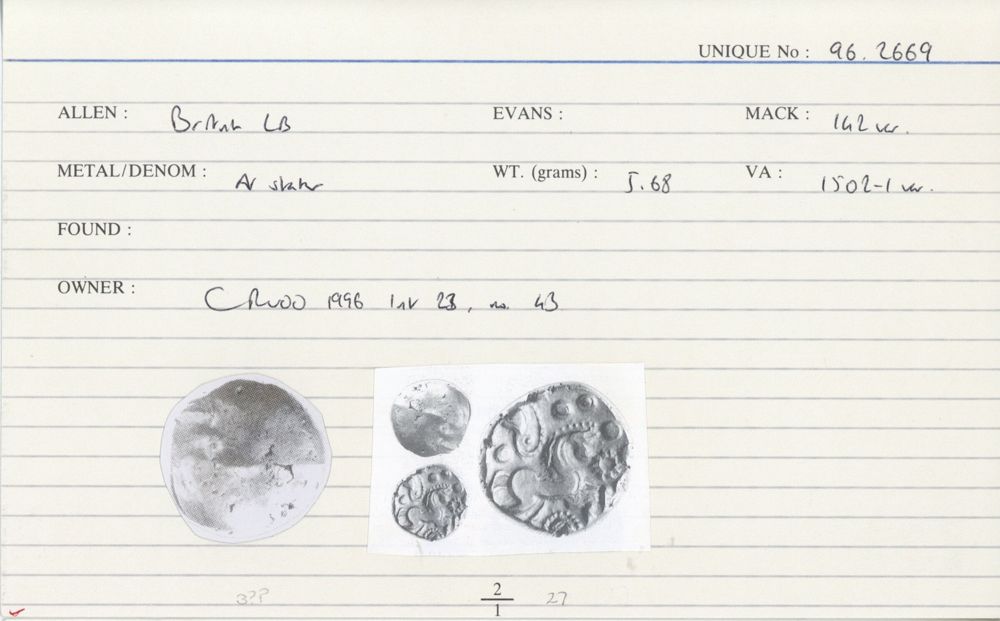 UNIQUE No : 96.2669
ALLEN : British LB EVANS : MACK : 142 var.
METAL/DENOM : AV stater WT. (grams) : 5.68 VA : 1502-1 var.
FOUND :
OWNER : 1996 Inv 23, no. 43
2
1
27